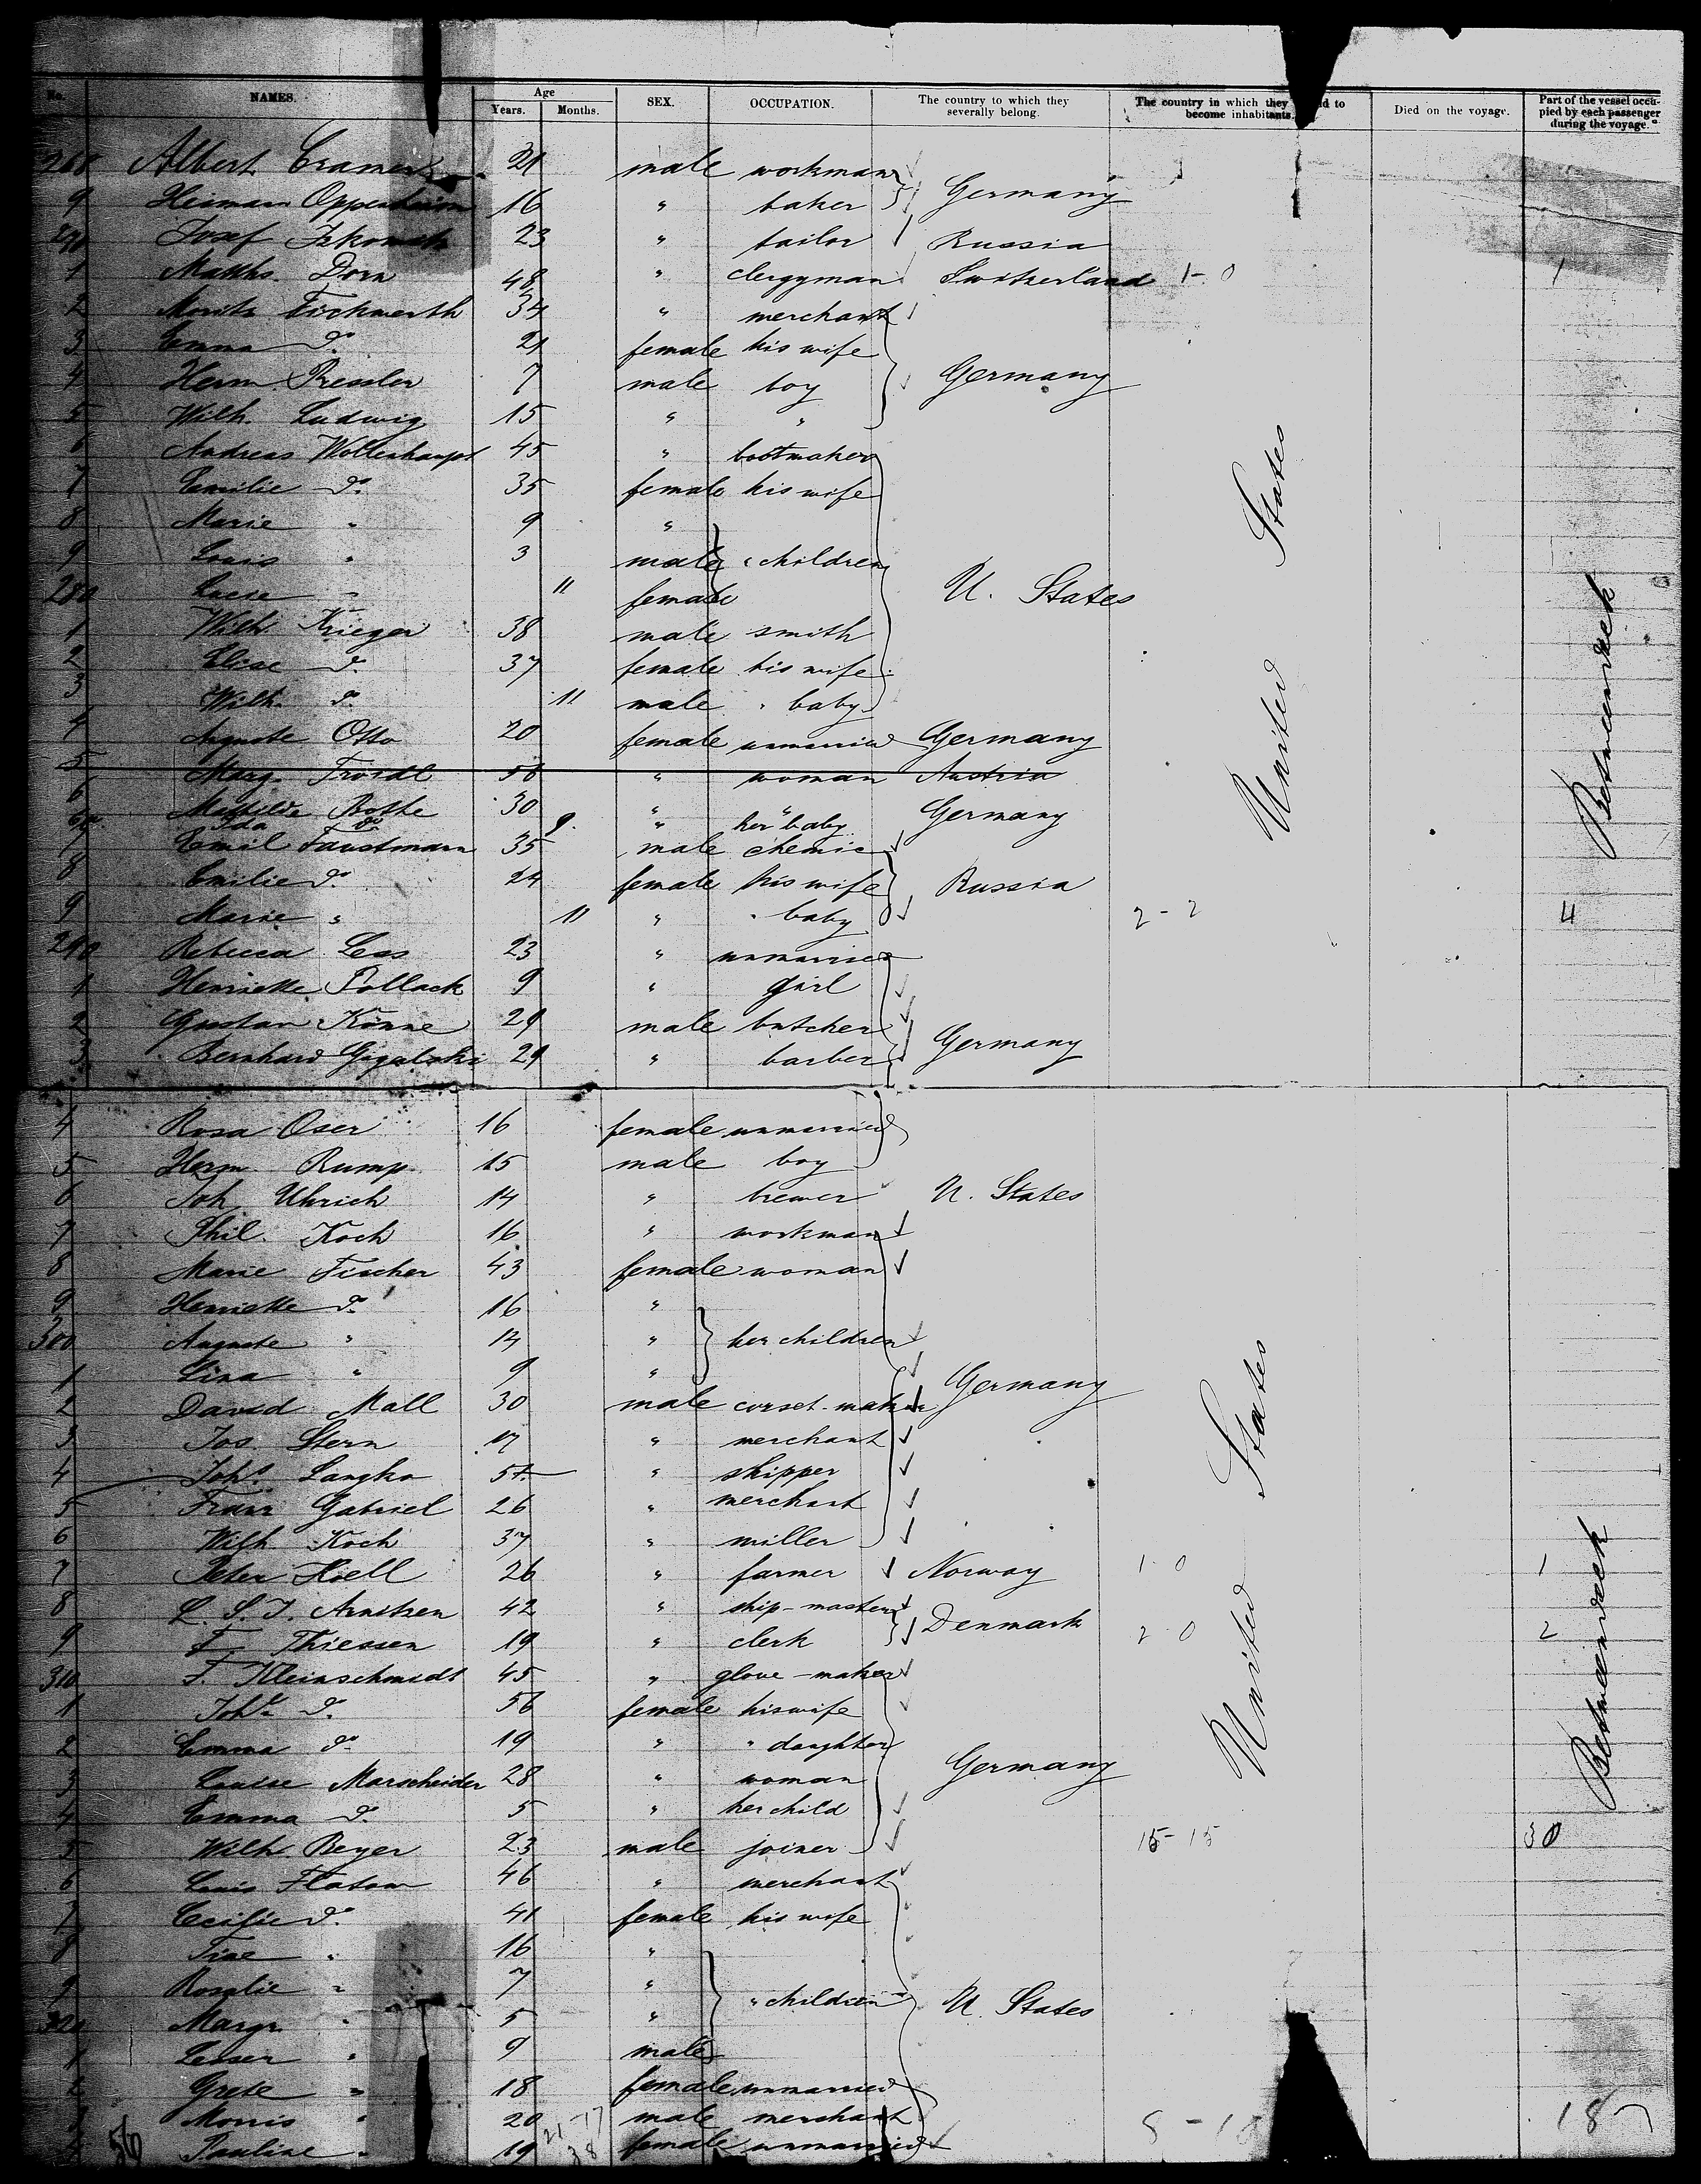 No. NAMES. Age Years. Months. SEX. OCCUPATION. The country to which they severally belong. The country in which they to become inhabitants. Died on the voyage. Part of the vessel occupied by each passenger during the voyage.
268 Albert Cramer 21 male workman
9 Heimann Oppenheim 16 " baker Germany
270 Josef 23 " tailor Russia
1 Matths. Dorn 48 " clergyman Switzerland 1-0 1
2 Moritz 34 " merchant
3 Emma do 21 female his wife
4 Herm Ressler 7 male boy Germany
5 Wilh. Ludwig 15 " "
6 Andreas Wollenhaupt 45 " bootmaker
7 Emilie do 35 female his wife
8 Marie " 9 "
9 Louis " 3 male " children
280 " 11 female U. States
1 Wilh Krieger 38 male smith
2 Elise do 37 female his wife
3 Wilh. do 11 male " baby
4 Auguste Otto 20 female unmarried Germany
5 Marg. Troidl 56 " woman Austria
6 Mathilde Rothe 30 " " Germany
6a Ida do 9 " her baby
7 Emil Faustmann 35 male chemic
8 Emilie do 24 female his wife Russia
9 Marie " 11 " " baby 2-2 4
290 Rebecca Less 23 " unmarried
1 Henriette Pollack 9 " girl
2 Gustav Könne 29 male butcher
3 Bernhard Gogalski 29 " barber Germany
United States
Betweendeck
4 Rosa Oser 16 female unmarried
5 Herm Rump 15 male boy
6 Joh. Uhrich 14 " brewer U. States
7 Phil. Koch 16 " workman
8 Marie Fischer 43 female woman
9 Henriette do 16 "
300 Auguste " 14 " her children
1 Lina " 9 "
2 David Mall 30 male corset-maker Germany
3 Jos. Stern 17 " merchant
4 Johs Langka 54 " skipper
5 Franz Gabriel 26 " merchant
6 Wilh Koch 37 " miller
7 Peter Hoell 26 " farmer Norway 1-0 1
8 L. S. J. Arnitzen 42 " ship-master Denmark
9 F Thiessen 19 " clerk 2-0 2
310 F. Kleinschmidt 45 " glove-maker
1 do 56 female his wife
2 Emma do 19 " " daughter
3 Louise Marscheider 28 " woman Germany
4 Emma do 5 " her child
5 Wilh Beyer 23 male joiner 15-15 30
6 Louis Flatow 46 " merchant
7 Cecilie do 41 female his wife
8 " 16 "
9 Rosalie " 7 "
320 Margr. " 5 " " children U. States
1 Lesser " 9 male
2 Grete " 18 female unmarried
3 Morris " 20 male merchant
4 Pauline " 19 female unmarried
United States
Betweendeck
56
21-17
38
8-10
18